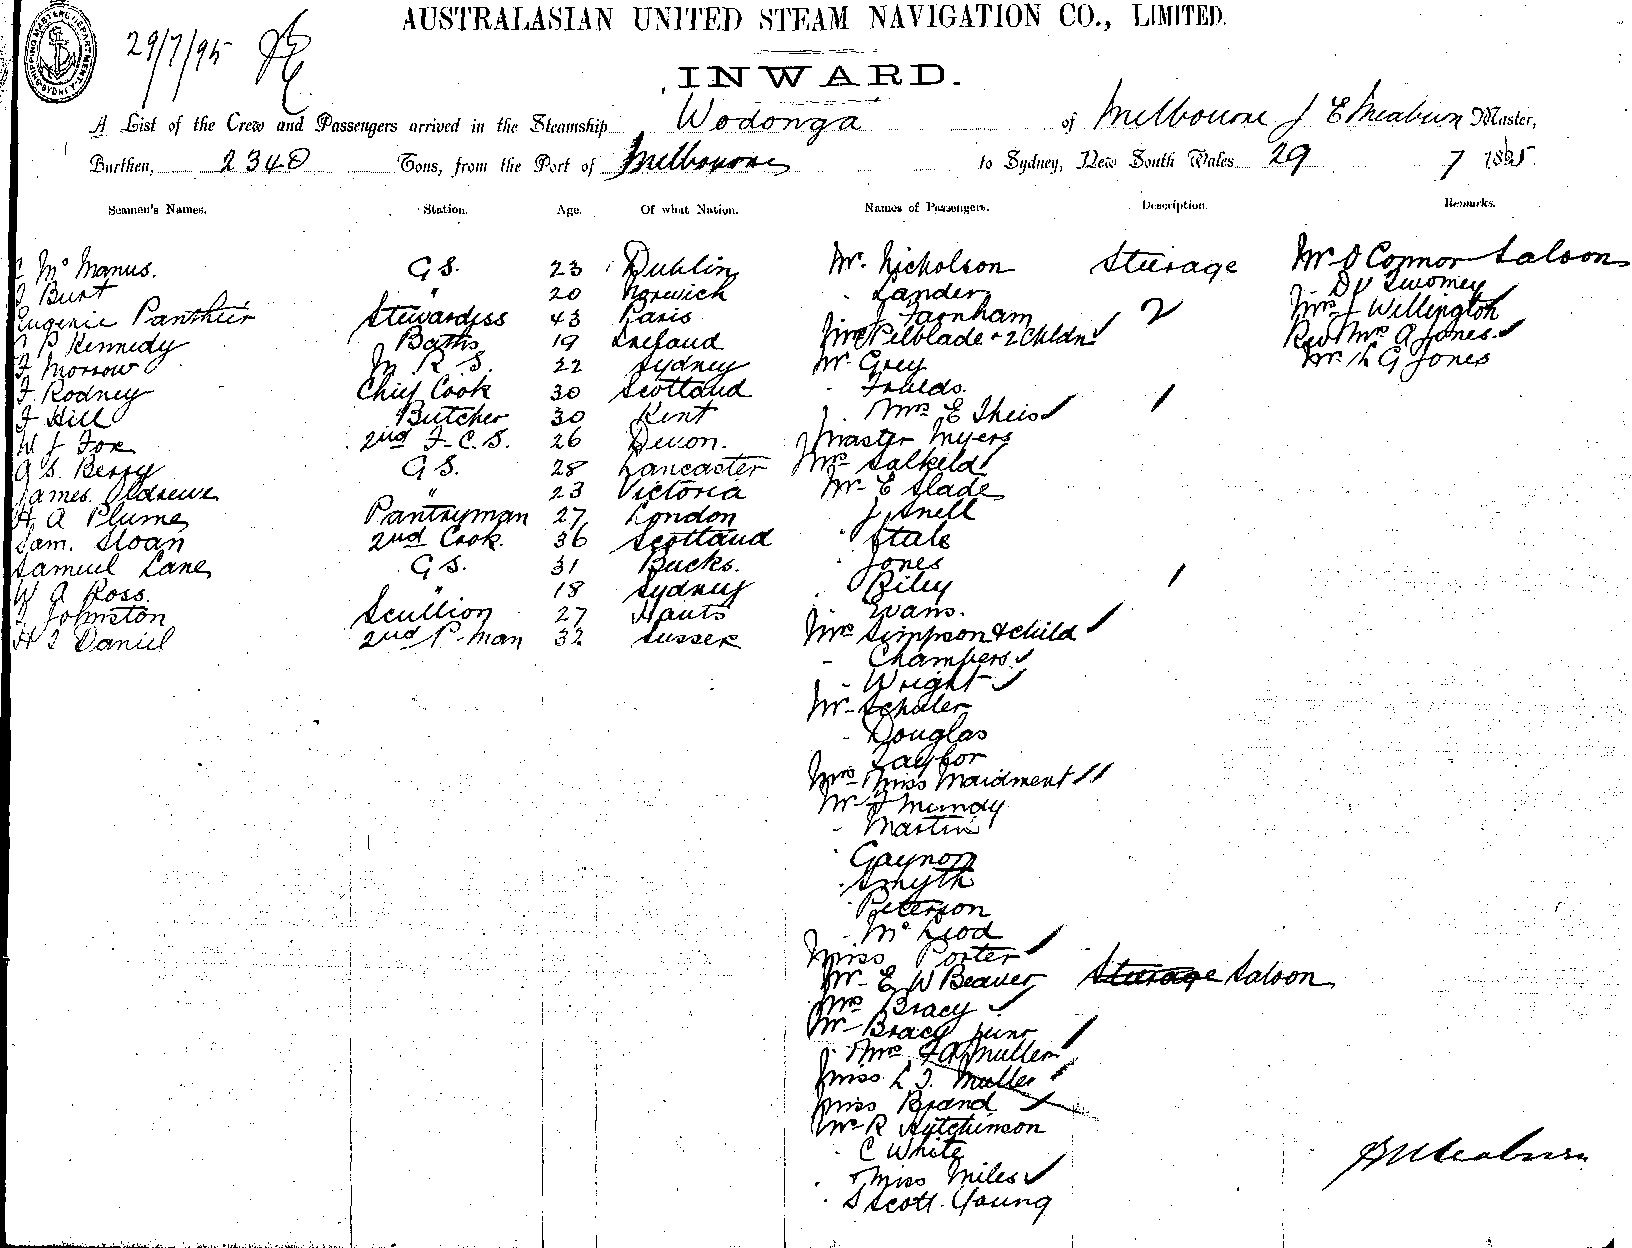 AUSTRALASIAN UNITED STEAM NAVIGATION CO., LIMITED.
29/7/95
INWARD.
A List of the Crew and Passengers arrived in the Steamship Wodonga of Melbourne J E Meaburn Master,
Burthen, 2340 Tons, from the Port of Melbourne to Sydney, New South Wales 29 7 1895
Seamen's Names. Station. Age. Of what Nation. Names of Passengers. Description. Remarks.
McManus. G S. 23 Dublin Mr. Nicholson Steerage Mr O Connor Saloon
Burt " 20 Norwich - Lander Dr Twomey
Eugenie Panthier Stewardess 43 Paris J Farnham 2 Mrs J Willington
P Kennedy Baths 19 Ireland Mrs Pelblade + 2 Chldn Rev Mrs A Jones
J Morrow M R S. 22 Sydney Mr. Grey Mr. H G Jones
J. Rodney Chief Cook 30 Scotland - Foulds.
J Hill Butcher 30 Kent Mrs E Theis 1
W J Fox 2nd F.C.S. 26 Devon. Master Myers
G S. Berry G S. 28 Lancaster Mrs Salkeld
James Oldrewe " 23 Victoria Mr. E Slade
H. A Plume Pantryman 27 London J Snell
Sam. Sloan 2nd Cook. 36 Scotland - State
Samuel Lane G S. 31 Bucks. - Jones
W A Ross. " 18 Sydney - Riley 1
J Johnston Scullion 27 Hants - Evans.
H J Daniel 2nd P-man 32 Sussex Mrs Simpson & child
- Chambers
- Wright
Mr. Schuler
- Douglas
- Taylor
Mrs Miss Maidment
Mr J Mundy
- Martin
- Gaynor
- Smyth
- Peterson
- McLeod
Miss Porter
Mr. E W Beaver Steerage Saloon
Mrs Bracy
Mr Bracy junr
Mrs F A Muller
Miss L J. Muller
Miss Brand
Mr R Hutchinson
- C White
- Miss Miles
- S Scott-Young
J E Meaburn